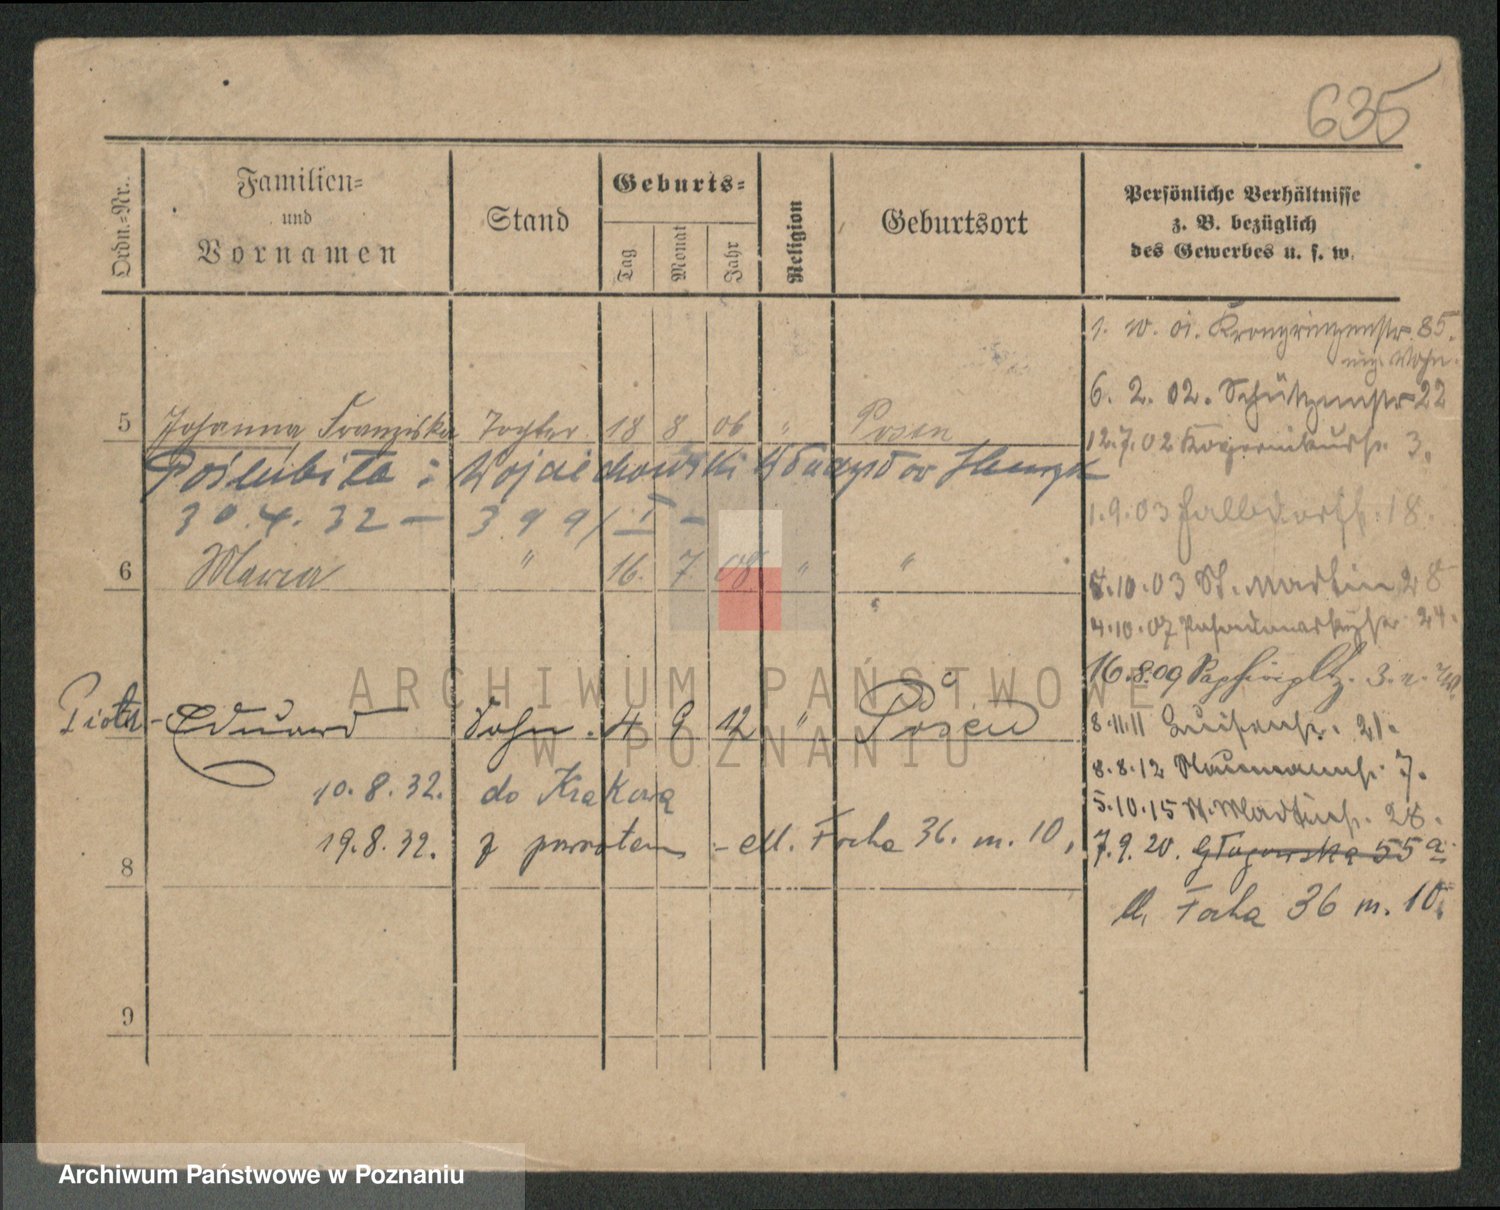 635
Ordn.-Nr.
Familien-
und
Vornamen
Stand
Geburts-
Tag
Monat
Jahr
Religion
Geburtsort
Persönliche Verhältnisse
z. B. bezüglich
des Gewerbes u. s. w.
1. 10. 01. Kronprinzenstr. 85.
6. 2. 02. Schützenstr 22
5 Johanna Franziska Tochter 18 8 06 " Posen
12.7.02 Kopernikusstr. 3.
Poślubiła: Wojciechowski Władysław Henryk
30.4.32 — 399/I —
1.9.03 18.
6 Maria " 16. 7. 08 " "
10.03 St. Martin 28
4.10.07 24.
16.8.09 3.
Piotr - Eduard Sohn. 4 9 12 " Posen
8.11.11 Luisenstr. 21.
8.8.12 Naumannstr. 7.
10.8.32. do Krakowa
5.10.15 St. Martinstr. 28.
19.8.32. z powrotem - M. Focha 36. m. 10,
7.9.20. Głogowska 55 a
8
M. Focha 36 m. 10.
9
ARCHIWUM PAŃSTWOWE
W POZNANIU
Archiwum Państwowe w Poznaniu